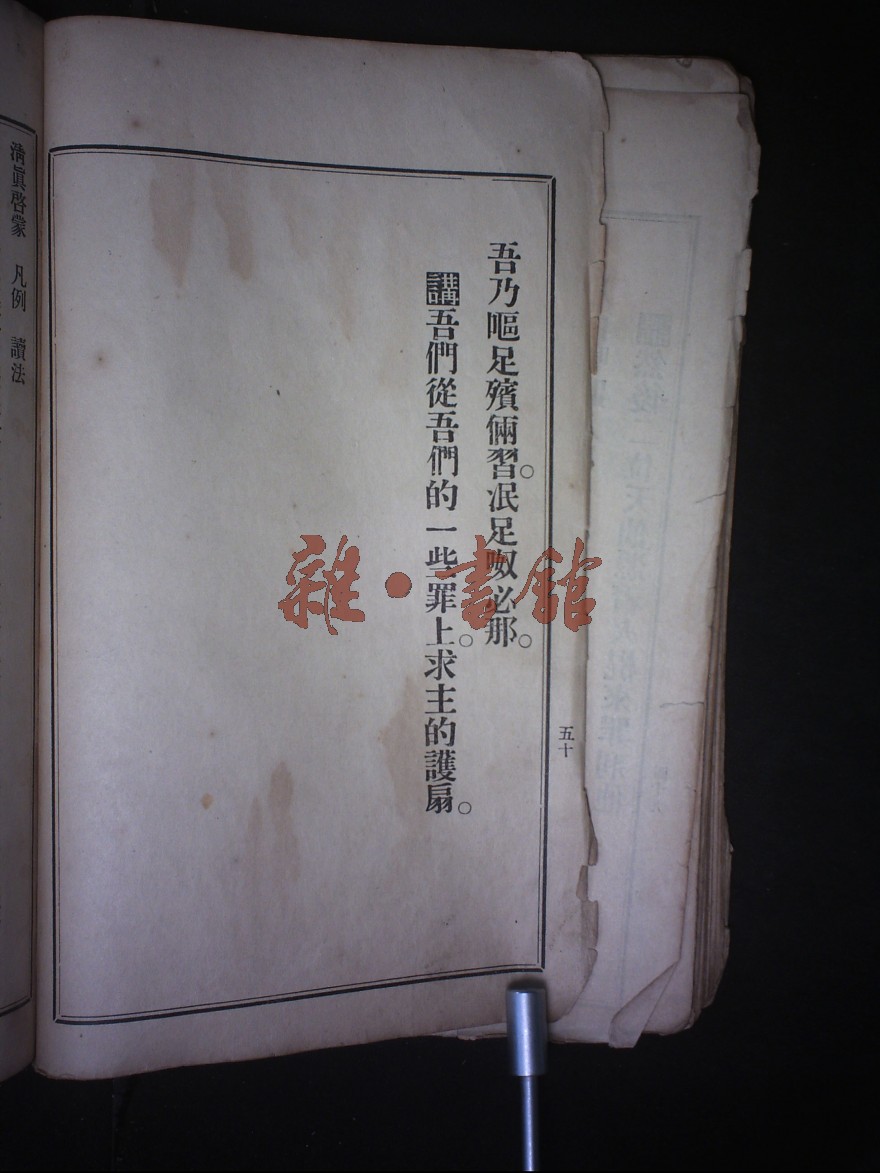 吾乃嘔足殯倆習。泯足呶必那。
講吾們從吾們的一些罪上。求主的護扇。
五十
清眞啓蒙 凡例 讀法
雜·書館